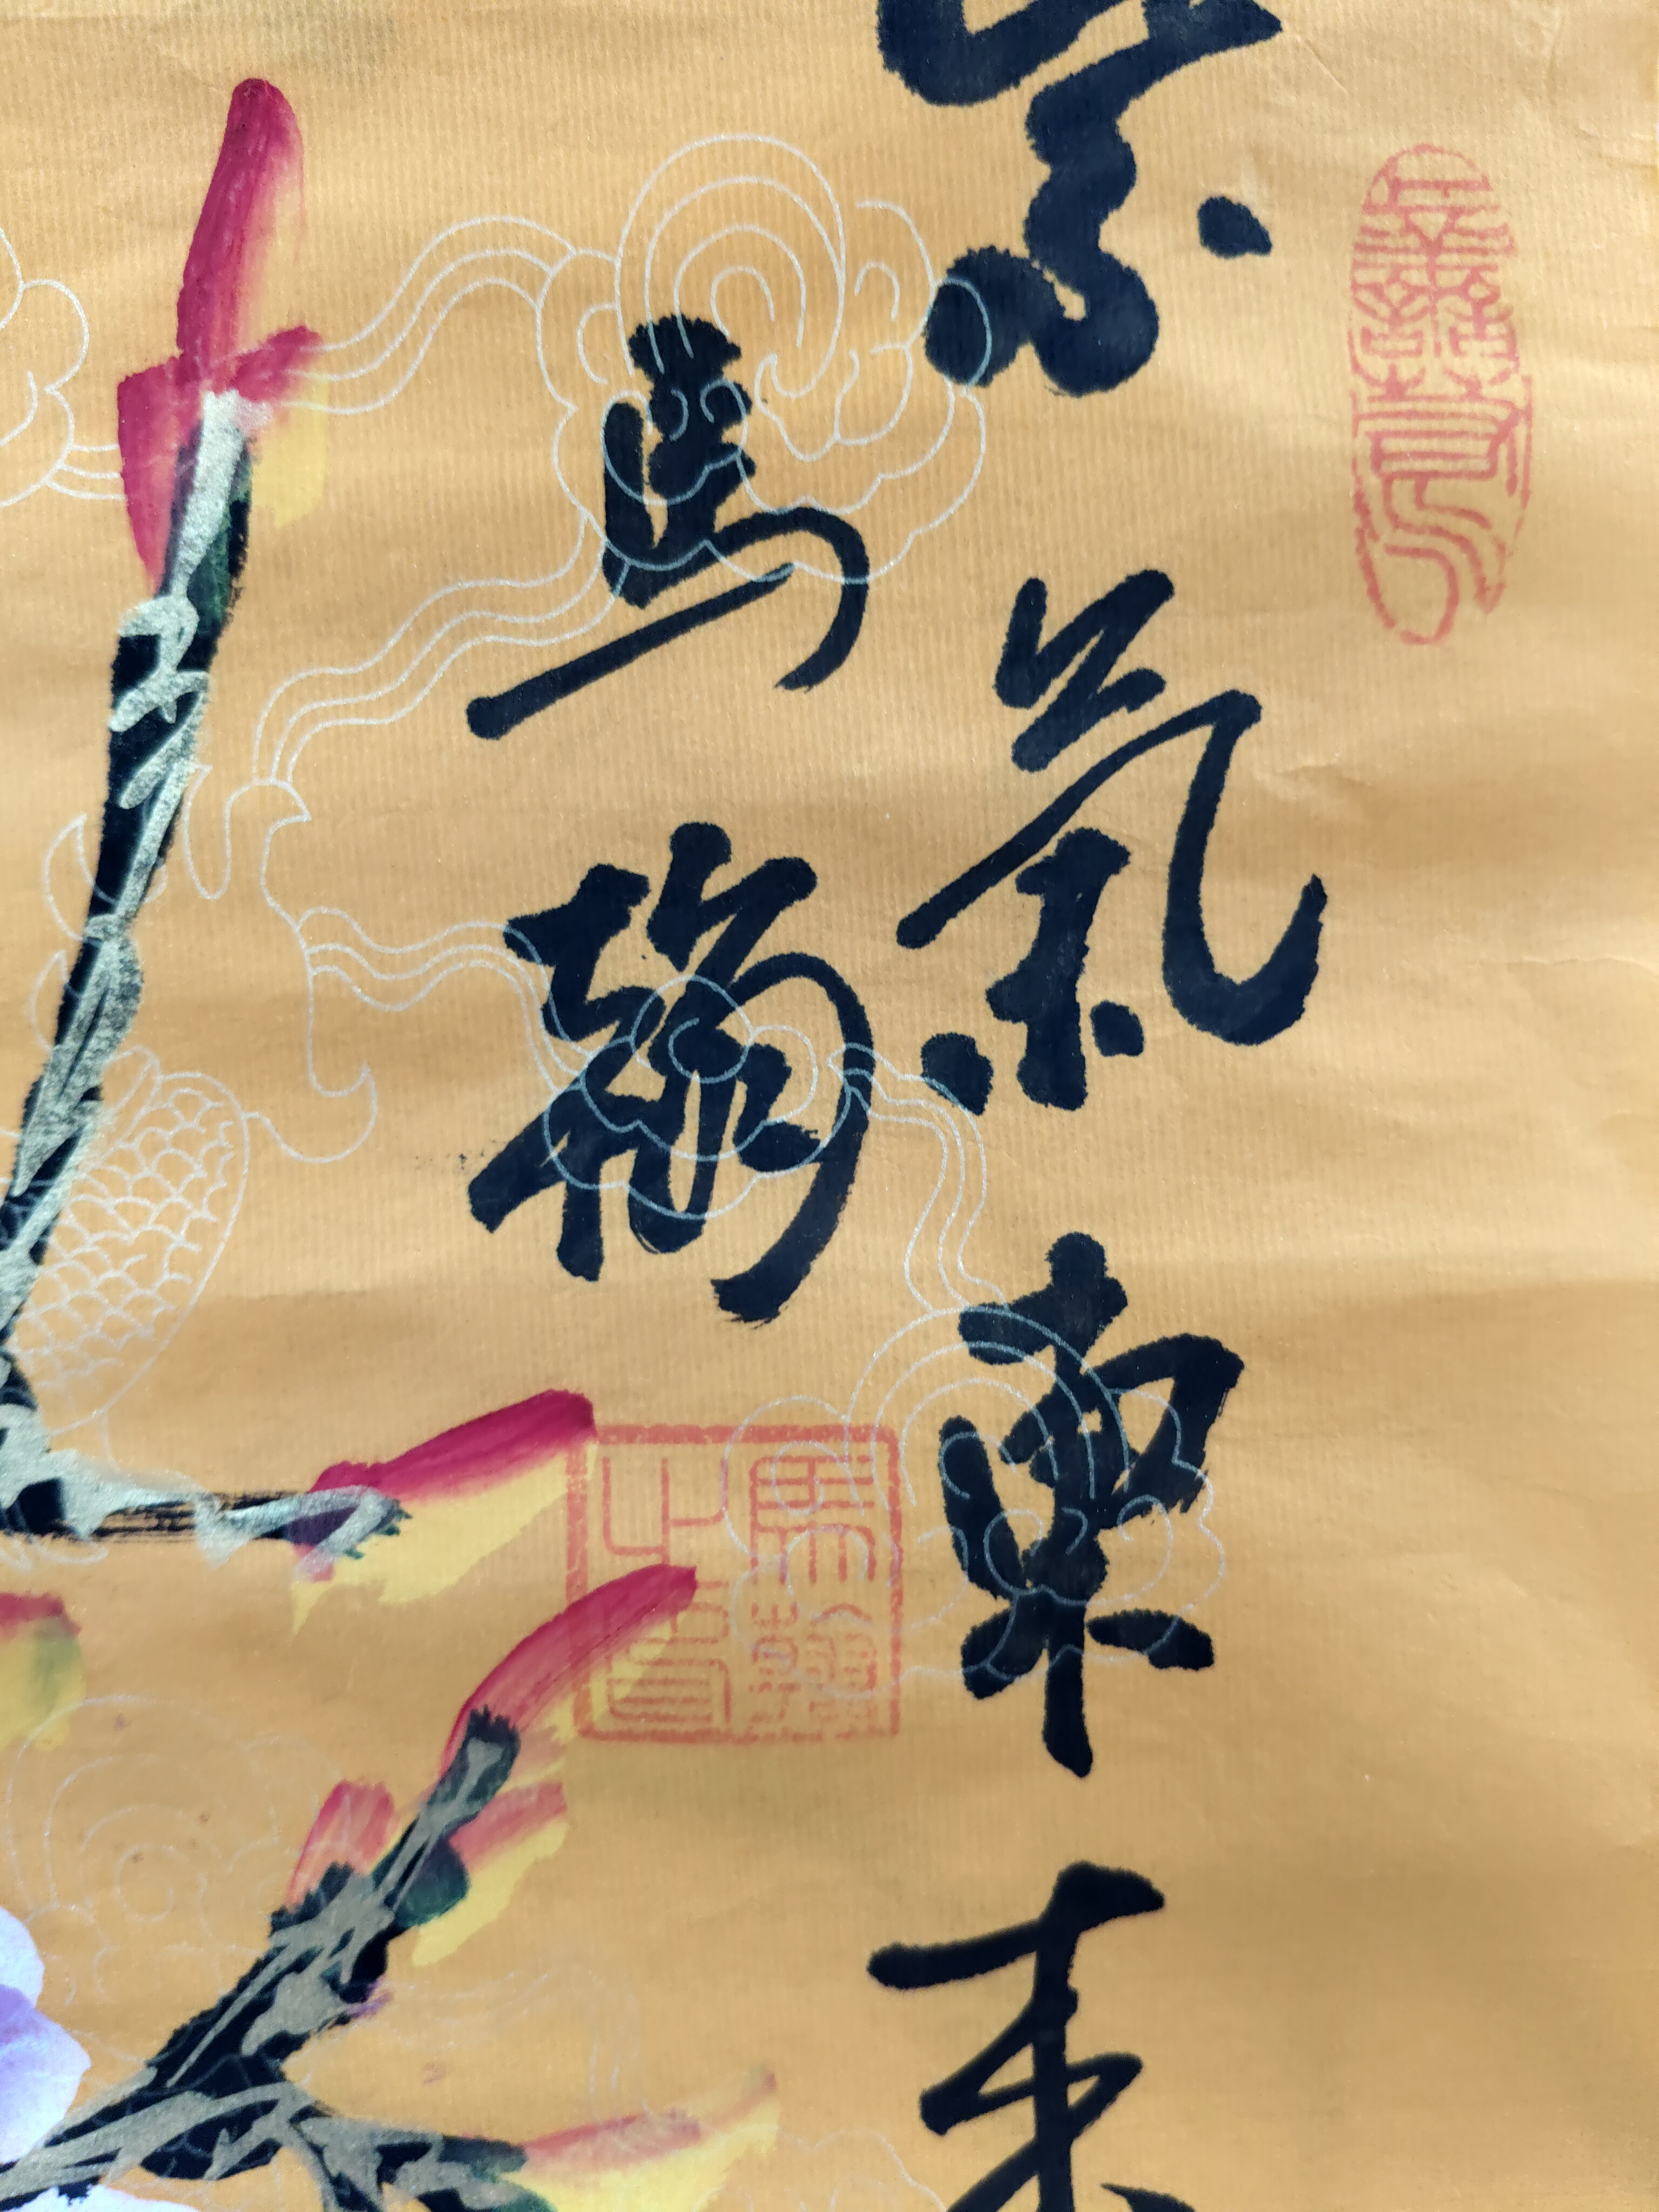 紫氣東來
馬翰
馬翰之印